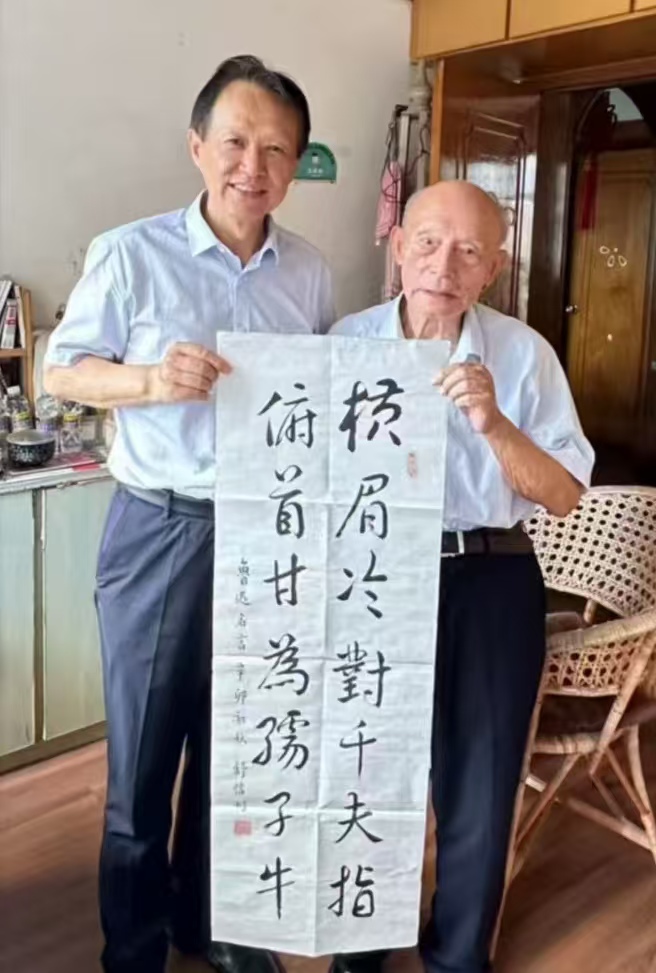 橫眉冷對千夫指
俯首甘為孺子牛
魯迅名言 辛卯初秋 舒信